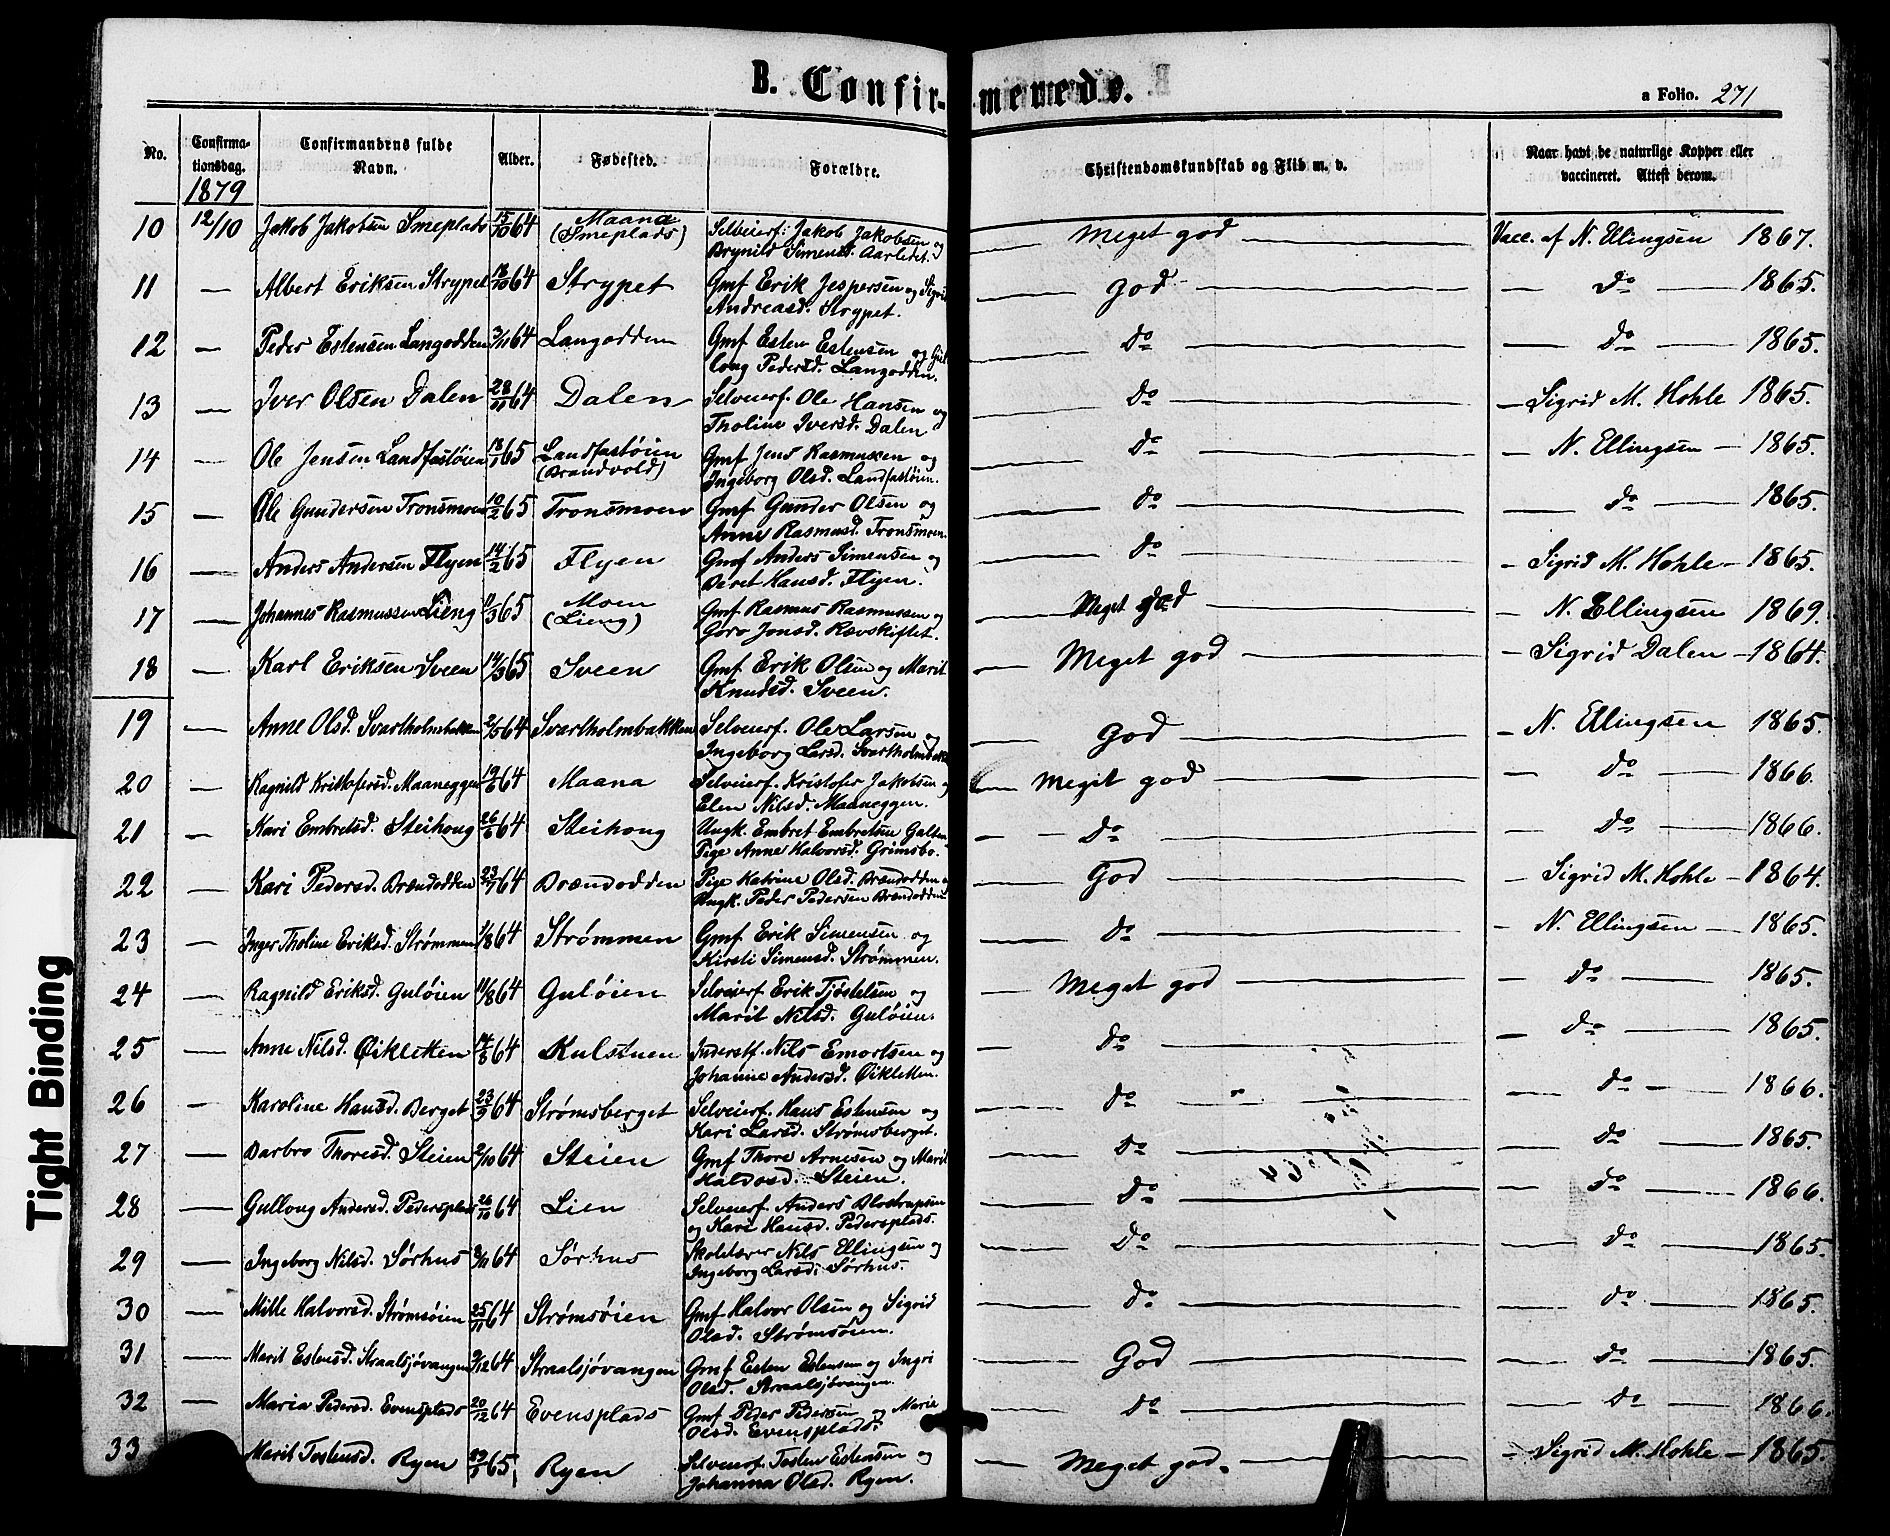 B. Confir-merede.
a Folio. 271
No. Confirmationsdag. Confirmandens fulde Navn. Alder. Fødested. Forældre. Christendomskundskab og Flid m. v. Naar havt de naturlige Kopper eller vaccineret. Attest derom.
1879
10 12/10 Jakob Jakobsen Smeplads 15/10 64 Maana (Smeplads) Selveierf: Jakob Jakobsen og Brynild Simensd. Aarletet. Meget god Vacc. af N. Ellingsen 1867.
11 — Albert Eriksen Strypet 18/10 64 Strypet Gmf Erik Jespersen og Sigrid Andreasd. Strypet. God — do — 1865.
12 — Peder Estensen Langodden 3/11 64 Langodden Gmf Esten Estensen og Gullong Pedersd. Langodden. do — do — 1865.
13 — Iver Olsen Dalen 28/11 64 Dalen Selveierf. Ole Hansen og Tholine Iversd. Dalen do — Sigrid M. Hohle 1865.
14 — Ole Jensen Landfastøien 18/1 65 Landfastøien (Brandvold) Gmf Jens Rasmussen og Ingeborg Olsd. Landfastøien. do N. Ellingsen — 1865.
15 — Ole Gundersen Tronsmoen 10/2 65 Tronsmoen Gmf Gunder Olsen og Anne Rasmusd. Tronsmoen. do — do — 1865.
16 — Anders Andersen Flyen 14/2 65 Flyen Gmf Anders Simensen og Beret Hansd. Flyen. do — Sigrid M. Hohle — 1865.
17 — Johannes Rasmussen Lieng 11/3 65 Moen (Lieng) Gmf Rasmus Rasmussen og Goro Jonsd. Rævskiftet. Meget god — N. Ellingsen 1869.
18 — Karl Eriksen Sveen 14/3 65 Sveen Gmf Erik Olsen og Marit Knudsd. Sveen. Meget god — Sigrid Dalen — 1864.
19 — Anne Olsd. Svartholmbakken 2/5 64 Svartholmbakken Selveierf. Ole Larsen og Ingeborg Larsd. Svartholmbakk God — N. Ellingsen 1865.
20 — Ragnild Kristofersd. Maaneggen 19/6 64 Maana Selveierf. Kristofer Jakobsen og Elen Nilsd. Maaneggen. Meget god — do — 1866.
21 — Kari Embretsd. Steihong 26/6 64 Steihong Ungk. Embret Embretsen Galten Pige Anne Halvorsd. Grimsbo. do — do — 1866.
22 — Kari Pedersd. Brændodden 23/7 64 Brændodden Pige Katrine Olsd. Brændodden og Ungk. Peder Pedersen Brændodden God — Sigrid M. Hohle — 1864.
23 — Inger Tholine Eriksd. Strømmen 1/8 64 Strømmen Gmf Erik Simensen og Kirsti Simensd. Strømmen. do — N. Ellingsen — 1865.
24 — Ragnild Eriksd. Guløien 11/8 64 Guløien Selveierf Erik Tjøstelsen og Marit Nilsd. Guløien. Meget god — do — 1865.
25 — Anne Nilsd. Øikletten 14/8 64 Kulstuen Inderstf. Nils Emortsen og Johanne Andersd. Øikletten. do — do — 1865.
26 — Karoline Hansd. Berget 23/9 64 Strømsberget Selveierf. Hans Estensen og Kari Larsd. Strømsberget. do do — 1866.
27 — Barbro Thoresd. Steien 2/10 64 Steien Gmf Thore Arnesen og Marit Haldosd. Steien. do do — 1865.
28 — Gullong Andersd. Pedersplads 26/10 64 Lien Selveierf. Anders Blostrupsen og Kari Hansd. Pedersplads. do — do — 1866.
29 — Ingeborg Nilsd. Sørhus 3/11 64 Sørhus Skolelærer Nils Ellingsen og Ingeborg Larsd: Sørhus. do — do — 1865.
30 — Mille Halvorsd. Strømsøien 25/11 64 Strømsøien Gmf Halvor Olsen og Sigrid Olsd. Strømsøien. do — do — 1865.
31 — Marit Estensd. Straalsjøvangen 9/12 64 Straalsjøvangen Gmf Esten Estensen og Ingri Olsd. Straalsjøvangen God — do — 1865.
32 — Maria Pedersd. Evensplads 20/12 64 Evensplads Gmf Peder Pedersen og Marie Olsd. Evensplads. do — do — 1866.
33 Marit Tostensd. Ryen 65 Ryen Selveierf. Tosten Estensen og Johanna Olsd. Ryen. Meget god. — Sigrid M. Hohle — 1865.
Tight Binding